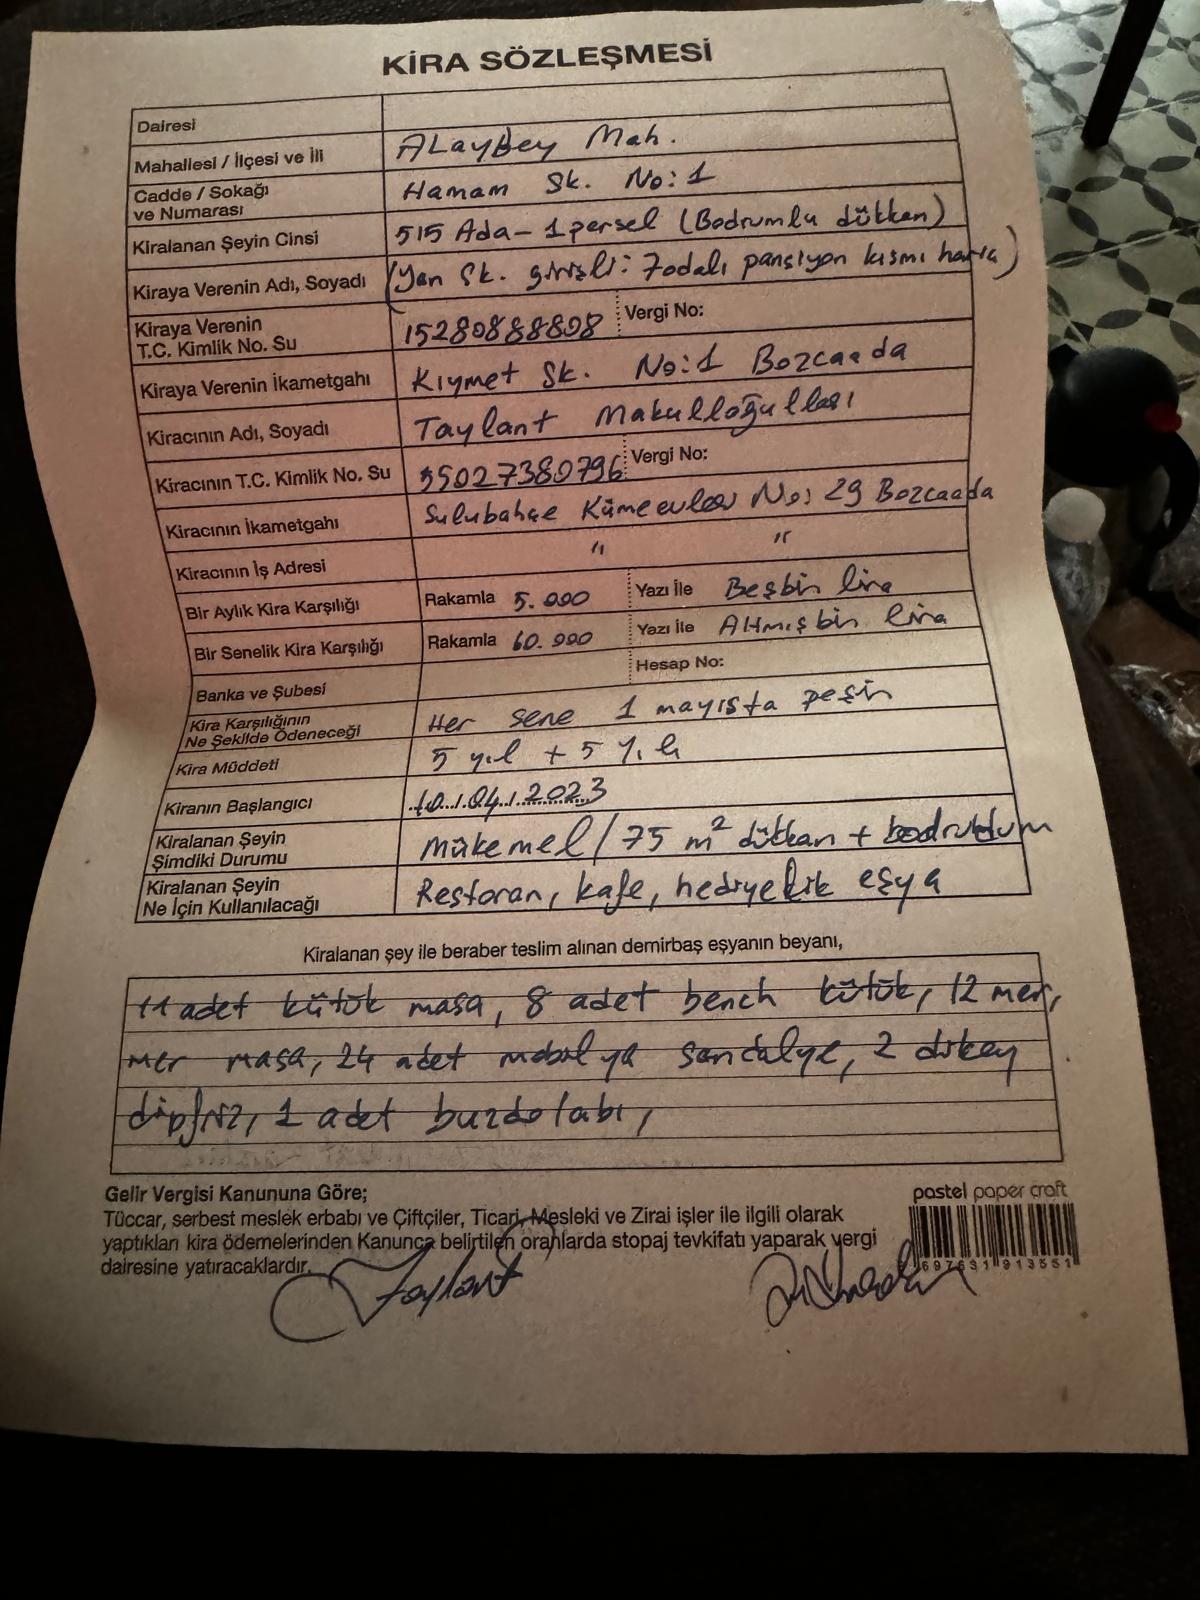 KİRA SÖZLEŞMESİ
Dairesi
Mahallesi / İlçesi ve İli ALaybey Mah.
Cadde / Sokağı ve Numarası Hamam Sk. No: 1
Kiralanan Şeyin Cinsi 515 Ada - 1 persel (Bodrumlu dükkan)
Kiraya Verenin Adı, Soyadı (Yan Sk. girişli: 7 odalı pansiyon kısmı hariç)
Kiraya Verenin T.C. Kimlik No. Su 15280888808 Vergi No:
Kiraya Verenin İkametgahı Kıymet Sk. No:1 Bozcaada
Kiracının Adı, Soyadı Taylant Makulloğulları
Kiracının T.C. Kimlik No. Su 55027380796 Vergi No:
Kiracının İkametgahı Sulubahçe Kümeevler No: 29 Bozcaada
Kiracının İş Adresi " "
Bir Aylık Kira Karşılığı Rakamla 5.000 Yazı İle Beşbin lira
Bir Senelik Kira Karşılığı Rakamla 60.000 Yazı İle Altmışbin lira
Banka ve Şubesi Hesap No:
Kira Karşılığının Ne Şekilde Ödeneceği Her sene 1 mayısta peşin
Kira Müddeti 5 yıl + 5 yıl
Kiranın Başlangıcı 10/04/2023
Kiralanan Şeyin Şimdiki Durumu Mükemel / 75 m² dükkan +
Kiralanan Şeyin Ne İçin Kullanılacağı Restoran, kafe, hediyelik eşya
Kiralanan şey ile beraber teslim alınan demirbaş eşyanın beyanı,
11 adet kütük masa, 8 adet bench kütük, 12 mer,
mer masa, 24 adet mobilya sandalye, 2 dikey
dipfriz, 1 adet buzdolabı,
Gelir Vergisi Kanununa Göre;
Tüccar, serbest meslek erbabı ve Çiftçiler, Ticari, Mesleki ve Zirai işler ile ilgili olarak
yaptıkları kira ödemelerinden Kanunca belirtilen oranlarda stopaj tevkifatı yaparak vergi
dairesine yatıracaklardır.
pastel paper craft
697631 913551
Taylant